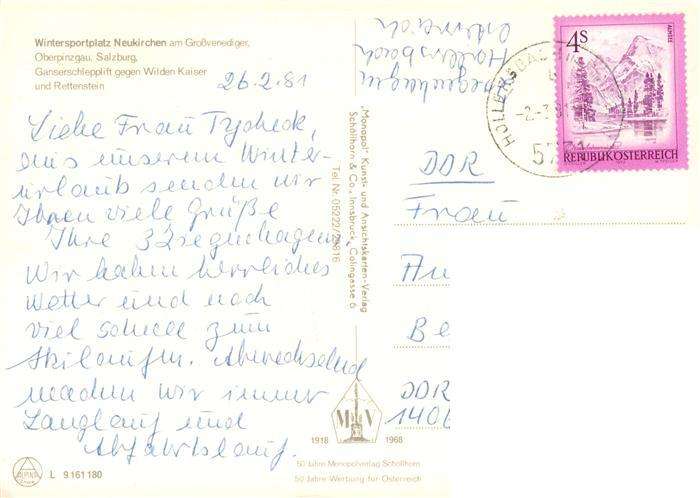 Wintersportplatz Neukirchen am Großvenediger,
Oberpinzgau, Salzburg,
Ganserschlepplift gegen Wilden Kaiser
und Rettenstein
26.2.81
Liebe Frau Tzscheck,
aus unserem Winter-
urlaub senden wir
Ihnen viele Grüße
Ihre 3 Ziegenhagens,
Wir haben herrliches
Wetter und noch
viel Schnee zum
Skilaufen. Abwechselnd
machen wir immer
Langlauf und
Abfahrtslauf.
Ziegenhagen
Hollersbach
Österreich
"Monopol" Kunst- und Ansichtskarten-Verlag
Schöllhorn & Co., Innsbruck, Colingasse 6
Tel. Nr. 05222/
4S
REPUBLIK ÖSTERREICH
HOLLERSBACH
-2.-3.81
DDR
Frau
An
Be
DDR
140
M V
1918
1968
50 Jahre Monopolverlag Schöllhorn
50 Jahre Werbung für Österreich
ALPINA
L 9.161 180